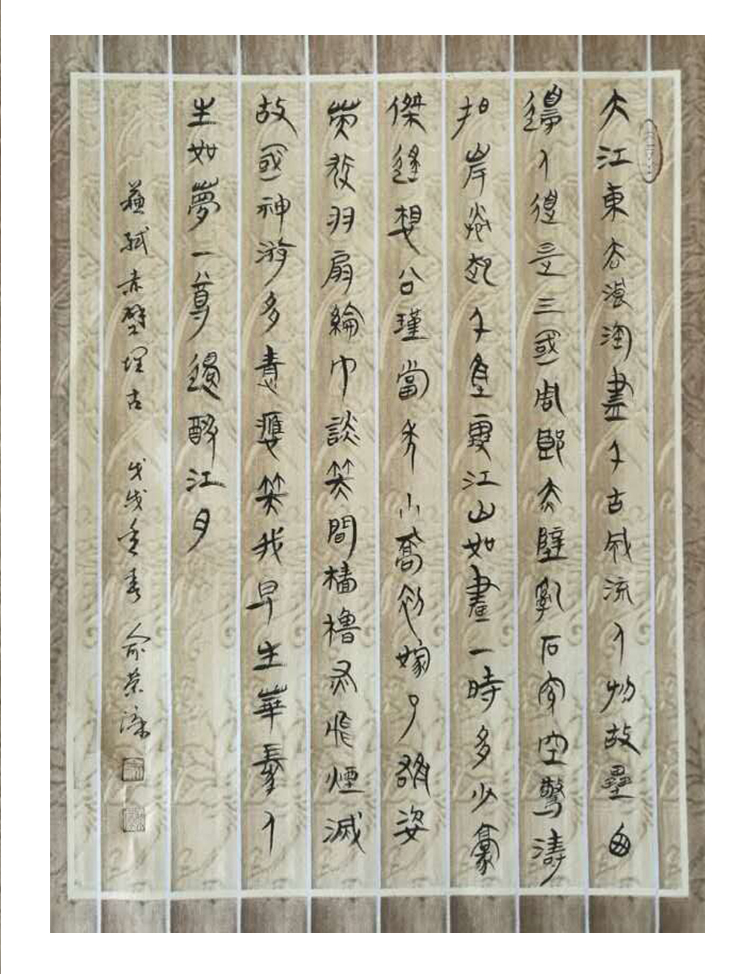 大江東去浪淘盡千古風流人物故壘西
邊人道是三國周郎赤壁亂石穿空驚濤
拍岸捲起千堆雪江山如畫一時多少豪
傑遙想公瑾當年小喬初嫁了雄姿
英發羽扇綸巾談笑間檣櫓灰飛煙滅
故國神游多情應笑我早生華髮人
生如夢一尊還酹江月
蘇軾赤壁懷古 戊戌年春 俞榮